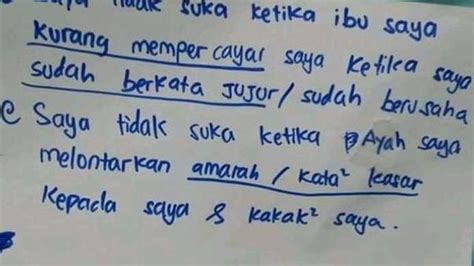 saya tidak suka ketika ibu saya
kurang mempercayai saya ketika saya
sudah berkata jujur / sudah berusaha
Saya tidak suka ketika Ayah saya
melontarkan amarah / kata² kasar
kepada saya & kakak² saya.